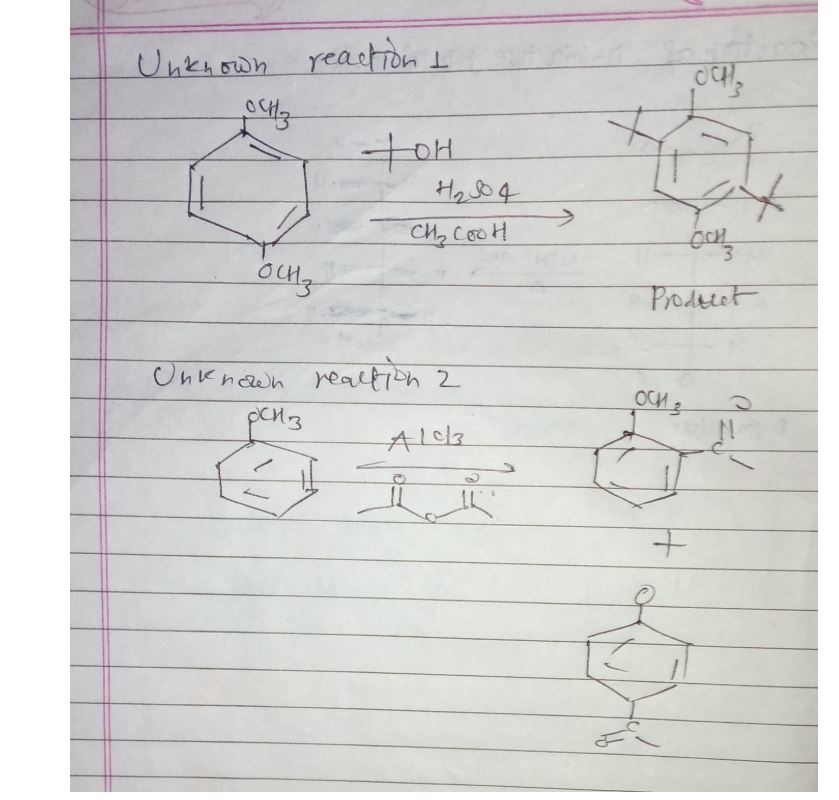 Unknown reaction 1
OCH3
OCH3
OH
H2SO4
CH3COOH
OCH3
OCH3
Product
Unknown reaction 2
OCH3
AlCl3
O
O
O
OCH3
O
C
+
O
C
O